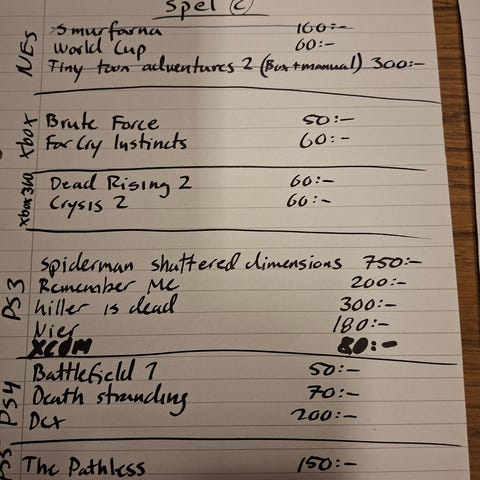 Spel C
NES
Smurfarna 160:-
World Cup 60:-
Tiny toon adventures 2 (Box+manual) 300:-
Xbox
Brute Force 50:-
Far Cry Instincts 60:-
Xbox 360
Dead Rising 2 60:-
Crysis 2 60:-
PS3
Spiderman shattered dimensions 750:-
Remember Me 200:-
killer is dead 300:-
Nier 180:-
XCOM 80:-
PS4
Battlefield 1 50:-
Death stranding 70:-
200:-
PS5
The Pathless 150:-